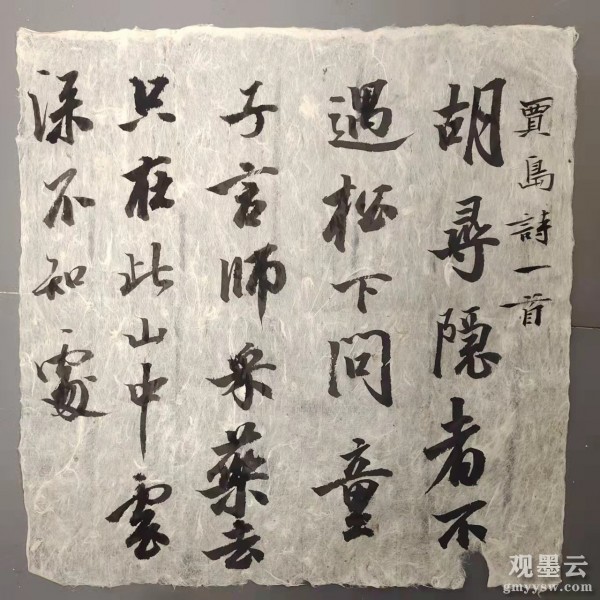 賈島詩一首
胡尋隐者不
遇松下问童
子言师采藥去
只在此山中雲
深不知處
观墨云
gmyysw.com